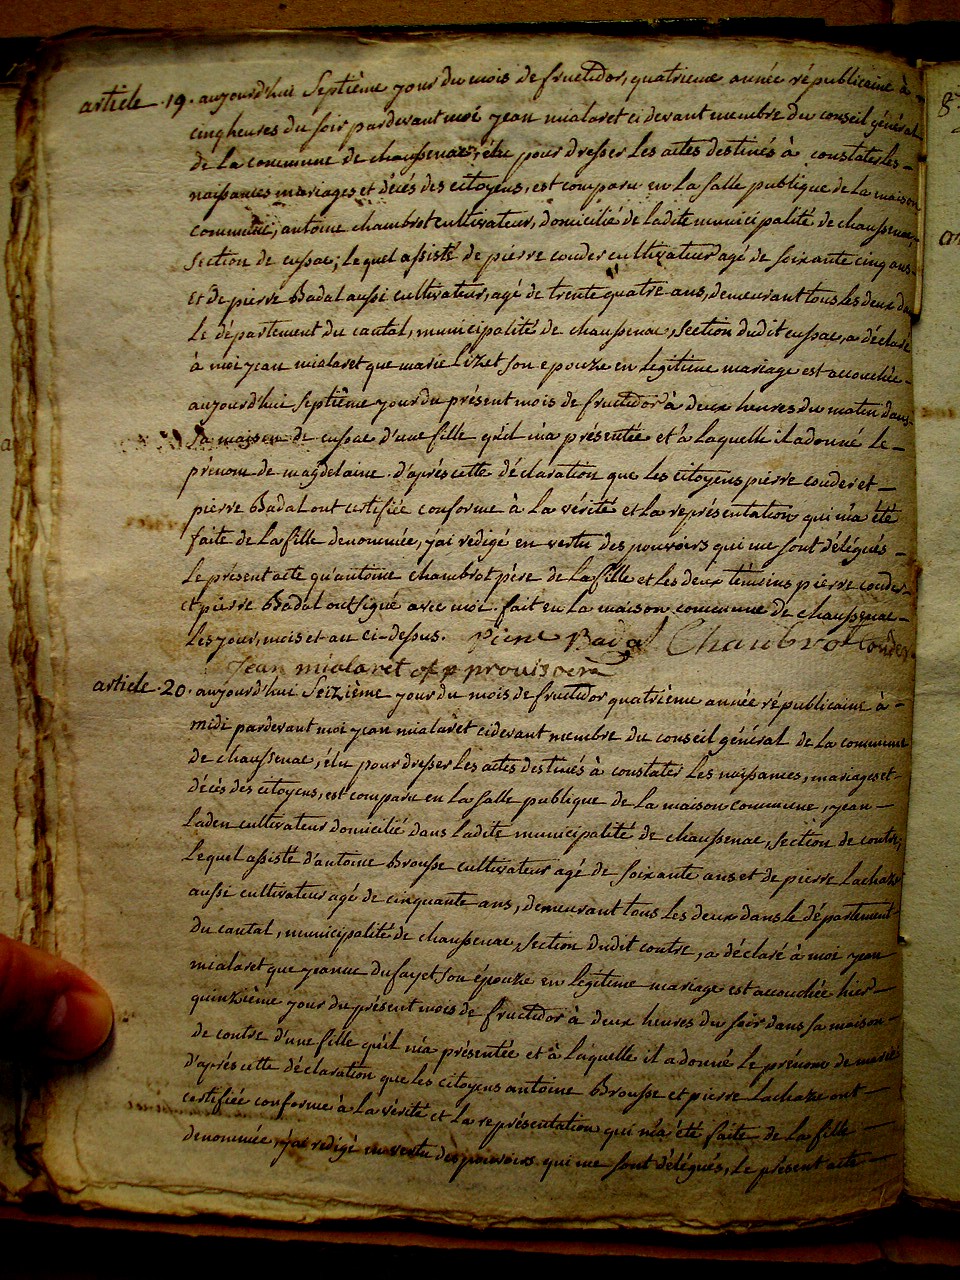 article 19. aujourd'hui Septième jour du mois de fructidor, quatrieme année républicaine à
cinq heures du soir pardevant moi jean mialaret ci devant membre du conseil général
de la commune de chaussenac, élu pour dresser les actes destinés à constater les
naissances mariages et décés des citoyens, est comparu en la salle publique de la maison
commune, antoine chambrot cultivateur, domicilié de ladite municipalité de chaussenac,
section de cussac; lequel assisté de pierre couder cultivateur agé de soixante cinq ans
et de pierre Badal aussi cultivateur, agé de trente quatre ans, demeurant tous les deux da
le département du cantal, municipalité de chaussenac, section dudit cussac, a déclaré
à moi jean mialaret que marie Lizet son epouze en légitime mariage est accouchée
aujourd'hui septième jour du présent mois de fructidor à deux heures du matin dans
sa maison de cussac d'une fille qu'il m'a présentée et à laquelle il a donné le
prénom de magdelaine. d'après cette déclaration que les citoyens pierre couder et
pierre Badal ont certifiée conforme à la vérité et la représentation qui m'a été
faite de la fille denommée, j'ai redigé en vertu des pouvoirs qui me sont délégués
le présent acte qu'antoine chambrot père de la fille et les deux témoins pierre couder
et pierre Badal ont signé avec moi. fait en la maison commune de chaussenac
les jour, mois et an ci-dessus. piere Badal Chambrot Couder
Jean mialaret of p prouisoera
article 20. aujourd'hui Seizième jour du mois de fructidor quatrième année républicaine à
midi pardevant moi jean mialaret cidevant membre du conseil général de la commune
de chaussenac, élu pour dresser les actes destinés à constater les naissances, mariages et
décés des citoyens, est comparu en la salle publique de la maison commune, jean
Laden cultivateur domicilié dans ladite municipalité de chaussenac, section de contre,
lequel assisté d'antoine Brousse cultivateur agé de soixante ans et de pierre Lachaze
aussi cultivateur agé de cinquante ans, demeurant tous les deux dans le département
du cantal, municipalité de chaussenac, section dudit contre, a déclaré à moi jean
mialaret que jeanne dufayet son épouze en légitime mariage est accouchée hier
quinzième jour du présent mois de fructidor à deux heures du soir dans sa maison
de contre d'une fille qu'il m'a présentée et à laquelle il a donné le prénom de marie
d'après cette déclaration que les citoyens antoine Brousse et pierre Lachaze ont
certifiée conforme à la vérité et la représentation qui m'a été faite de la fille
denommée, j'ai redigé en vertu des pouvoirs qui me sont délégués, le présent acte